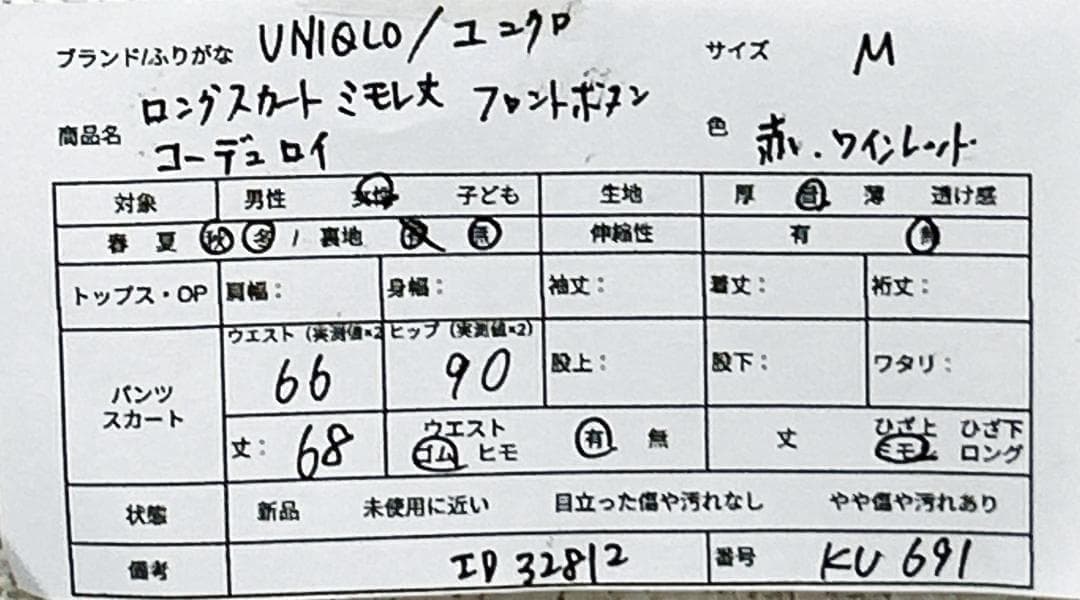 ブランド/ふりがな UNIQLO/ユニクロ サイズ M
商品名 ロングスカート ミモレ丈 フロントボタン
コーデュロイ 色 赤い、ワインレッド
対象 男性 女性 子ども 生地 厚 普 薄 透け感
春 夏 秋 冬 / 裏地 有 無 伸縮性 有 無
トップス・OP 肩幅: 身幅: 袖丈: 着丈: 裄丈:
パンツ スカート ウエスト (実測値×2 ヒップ (実測値×2) 股上: 股下: ワタリ:
66 90
丈: 68 ウエスト ゴム ヒモ 有 無 丈 ひざ上 ひざ下 ミモレ ロング
状態 新品 未使用に近い 目立った傷や汚れなし やや傷や汚れあり
備考 ID 32812 番号 KU 691